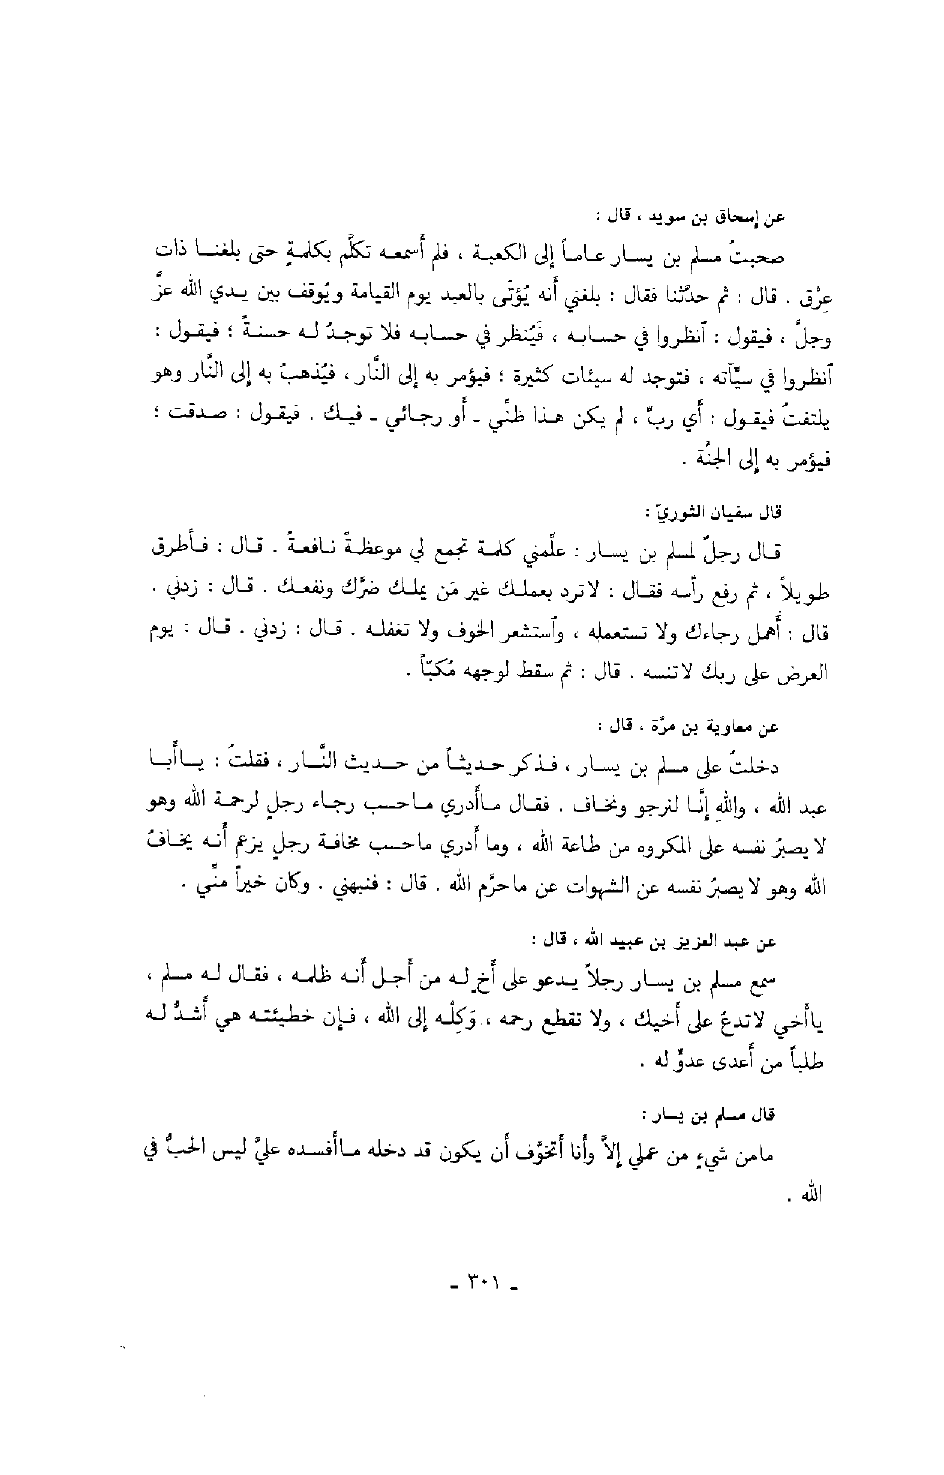 عن إسحاق بن سويد ، قال :
صحبتُ مسلم بن يسار عاماً إلى الكعبة ، فلم أسمعه تكلَّم بكلمةٍ حتى بلغنا ذات
عِرْق . قال : ثم حدَّثنا فقال : بلغني أنه يُؤتَى بالعبد يوم القيامة ويُوقف بين يدي الله عزَّ
وجلَّ ، فيقول : ٱنظروا في حسابه ، فيُنظر في حسابه فلا توجدُ له حسنةٌ ؛ فيقول :
ٱنظروا في سيِّآته ، فتوجد له سيئات كثيرة ؛ فيؤمر به إلى النَّار ، فيُذهبُ به إلى النَّار وهو
يلتفتُ فيقول : أي ربِّ ، لم يكن هذا ظنِّي ـ أو رجائي ـ فيك . فيقول : صدقت ؛
فيؤمر به إلى الجنَّة .
قال سفيان الثوريّ :
قال رجلٌ لمسلم بن يسار : علِّمني كلمة تجمع لي موعظةً نافعةً . قال : فأطرق
طويلاً ، ثم رفع رأسه فقال : لاترد بعملك غير مَن يملك ضرَّك ونفعك . قال : زدني .
قال : أهمل رجاءك ولا تستعمله ، وٱستشعر الخوف ولا تغفله . قال : زدني . قال : يوم
العرض على ربك لاتنسه . قال : ثم سقط لوجهه مُكبّاً .
عن معاوية بن مرَّة ، قال :
دخلتُ على مسلم بن يسار ، فذكر حديثاً من حديث النَّار ، فقلتُ : ياأبا
عبد الله ، واللهِ إنَّا لنرجو ونخاف . فقال ماأدري ماحسب رجاء رجلٍ لرحمة الله وهو
لا يصبرُ نفسه على المكروه من طاعة الله ، وما أدري ماحسب مخافة رجلٍ يزعم أنه يخافُ
الله وهو لا يصبرُ نفسه عن الشهوات عن ماحرَّم الله . قال : فنبهني . وكان خيراً منِّي .
عن عبد العزيز بن عبيد الله ، قال :
سمع مسلم بن يسار رجلاً يدعو على أخٍ له من أجل أنه ظلمه ، فقال له مسلم ،
ياأخي لاتدعُ على أخيك ، ولا تقطع رحمه ، وَكِلْه إلى الله ، فإن خطيئته هي أشدُّ له
طلباً من أعدى عدوٍّ له .
قال مسلم بن يسار :
مامن شيءٍ من عملي إلاَّ وأنا أتخوَّف أن يكون قد دخله ماأفسده عليَّ ليس الحبَّ في
الله .
ـ ٣٠١ ـ